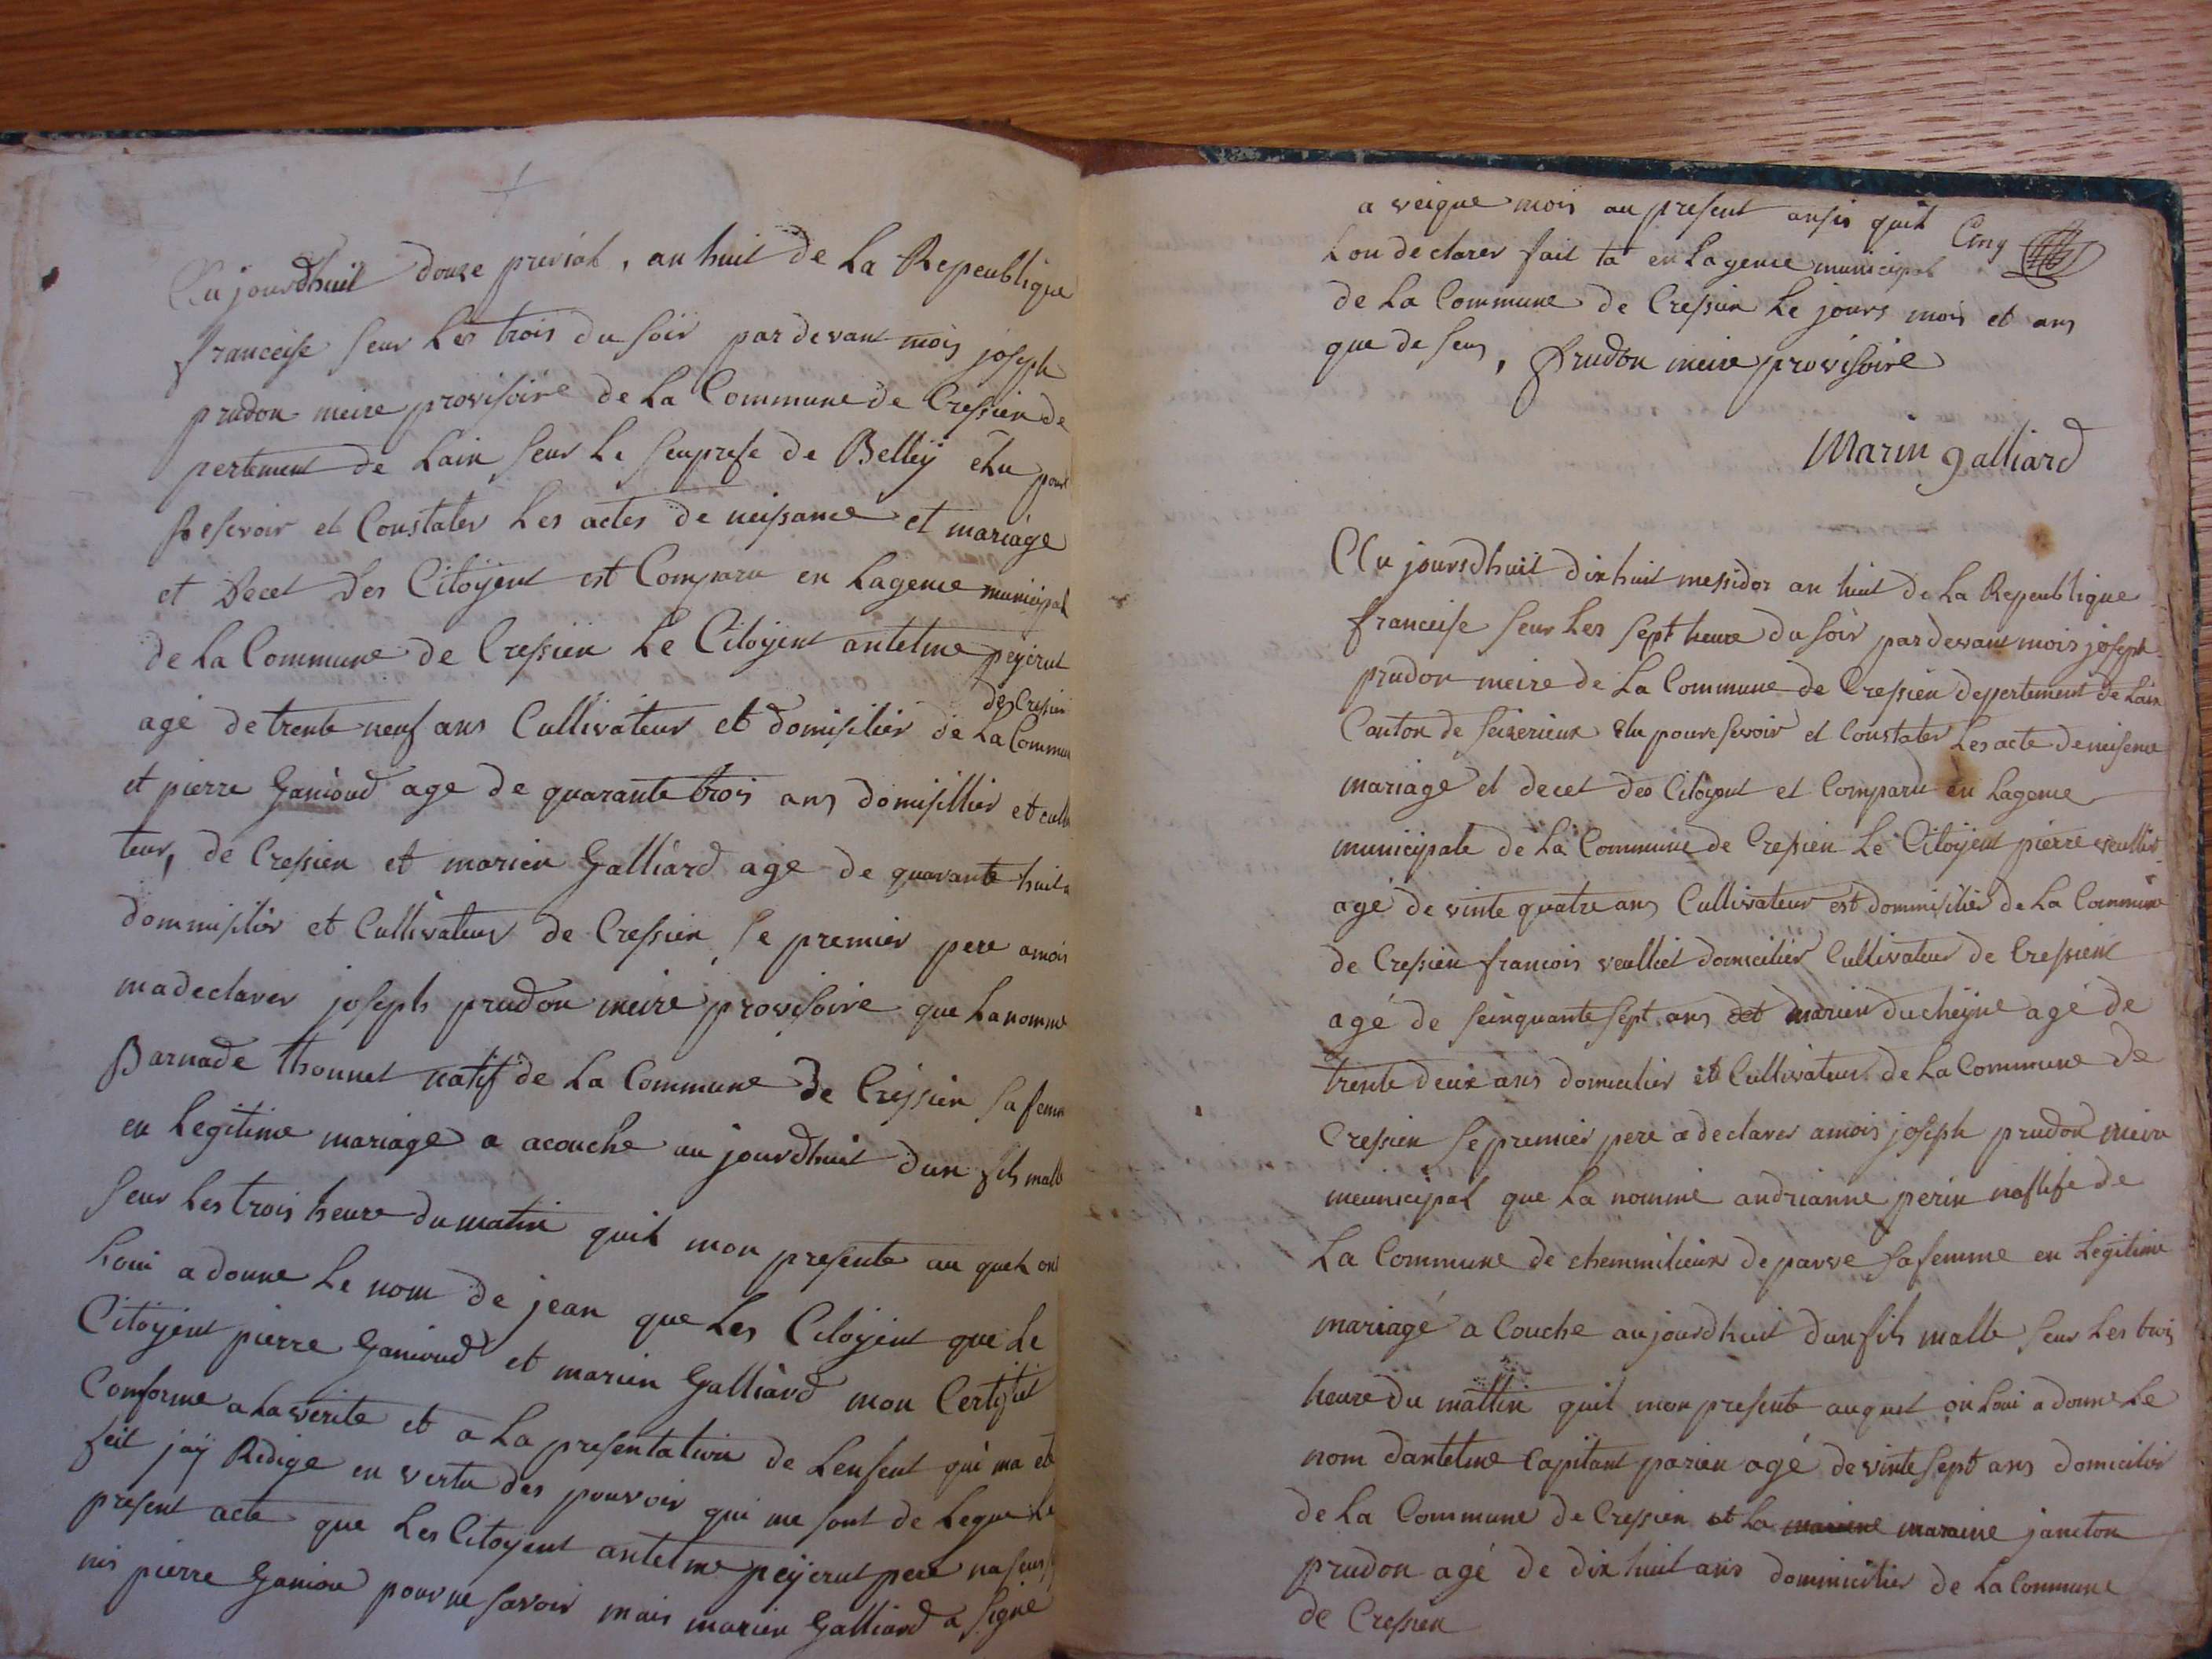 Au jourdhuit douze prerial, an huit de La Repeublique
franceise seur Les trois du soir par devant mois joseph
prudon meire provisoire de La Commune de Cressieu de
pertement de Lain seur Le seuprefe de Belley elu pour
Resevoir et Constater Les actes de neissance et mariage
et Decet des Citoÿent est Comparu en Lagence municipal
de La Commune de Cressieu Le Citoyent antelme peÿerut
de Cressieu
agé de trente neuf ans Cultivateur et domisilier de La Commun
et pierre Ganioud age de quarante trois ans domisillier et culti
teur, de Cressieu et marien Galliard age de quarante huit
dommisilier et Cultivateur de Cressieu, Le premier pere amois
ma declarer joseph prudon meire provisoire que La nomme
Barnade thonnet natif de La Commune de Cressieu sa femme
en Legitime mariage a acouche au jourdhuit dun fils malle
seur Les trois heure du matin quil mon presente au quel on
Loui a donne Le nom de jean que Les Citoyent que Le
Citoyent pierre Ganioud et marien Galliard mon Certifiet
Conforme a La verite et a La presentation de Lenfent qui ma ete
feit jaÿ Redige en vertu des pouvoir qui me sont de Legue Le
present acte que Les Citoyent antelme peÿerut pere na seus
nis pierre Ganiou pour ne savoir mais marien Galliard a signe
a veique mois au present ansis quil
Cinq
Lon declarer fait ta en Lagence municipal
de La Commune de Cressieu Le jours mois et ans
que de seus, Prudon meire provisoire
Marin galliard
Au joursdhuit dix huit messidor an huit de La Repeublique
franceise seur Les sept heure du soir par devant mois joseph
prudon meire de La Commune de Cressieu deppertement de Lain
Canton de seizerieux elu pour esevoir et Constater Les acte de neisence
mariage et decet des Citoyent et Comparu en Lagence
municipale de La Commune de Cressieu Le Citoÿent pierre veulliet
agé de vinte quatre ans Cultivateur est dommisilier de La Commune
de Cressieu francois veulliet domicilier Cultivateur de Cressieu
agé de seinquante sept ans et marien ducheÿne agé de
trente deux ans domicilier et Cultivateur de La Commune de
Cressieu Le premier pere a declarer amois joseph prudon meire
meunicipal que La nommé andrianne perin naffife de
La Commune de chemmilieux de parve sa femme en Legitime
mariagé a Couche aujourdhuit dun fils malle seur Les trois
heure du mattin quil mon presente auquel on Loui a donne Le
nom dantelme Capitant parien agé de vinte sept ans domicilier
de La Commune de Cressieu et La maraine janeton
prudon agé de dix huit ans dommicilier de La Commune
de Cressieu